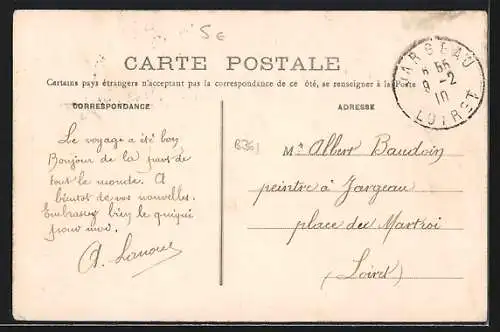 5€
CARTE POSTALE
Certains pays étrangers n'acceptant pas la correspondance de ce côté, se renseigner à la Poste
CORRESPONDANCE
ADRESSE
JARGEAU
9-2
10
LOIRET
B361
Le voyage a été bon
Bonjour de la part de
tout le monde. A
bientot de vos nouvelles.
Embrassez bien le quiqui
pour moi.
A. Lanoue
Mr Albert Baudoin
peintre à Jargeau
place du Martroi
(Loiret)